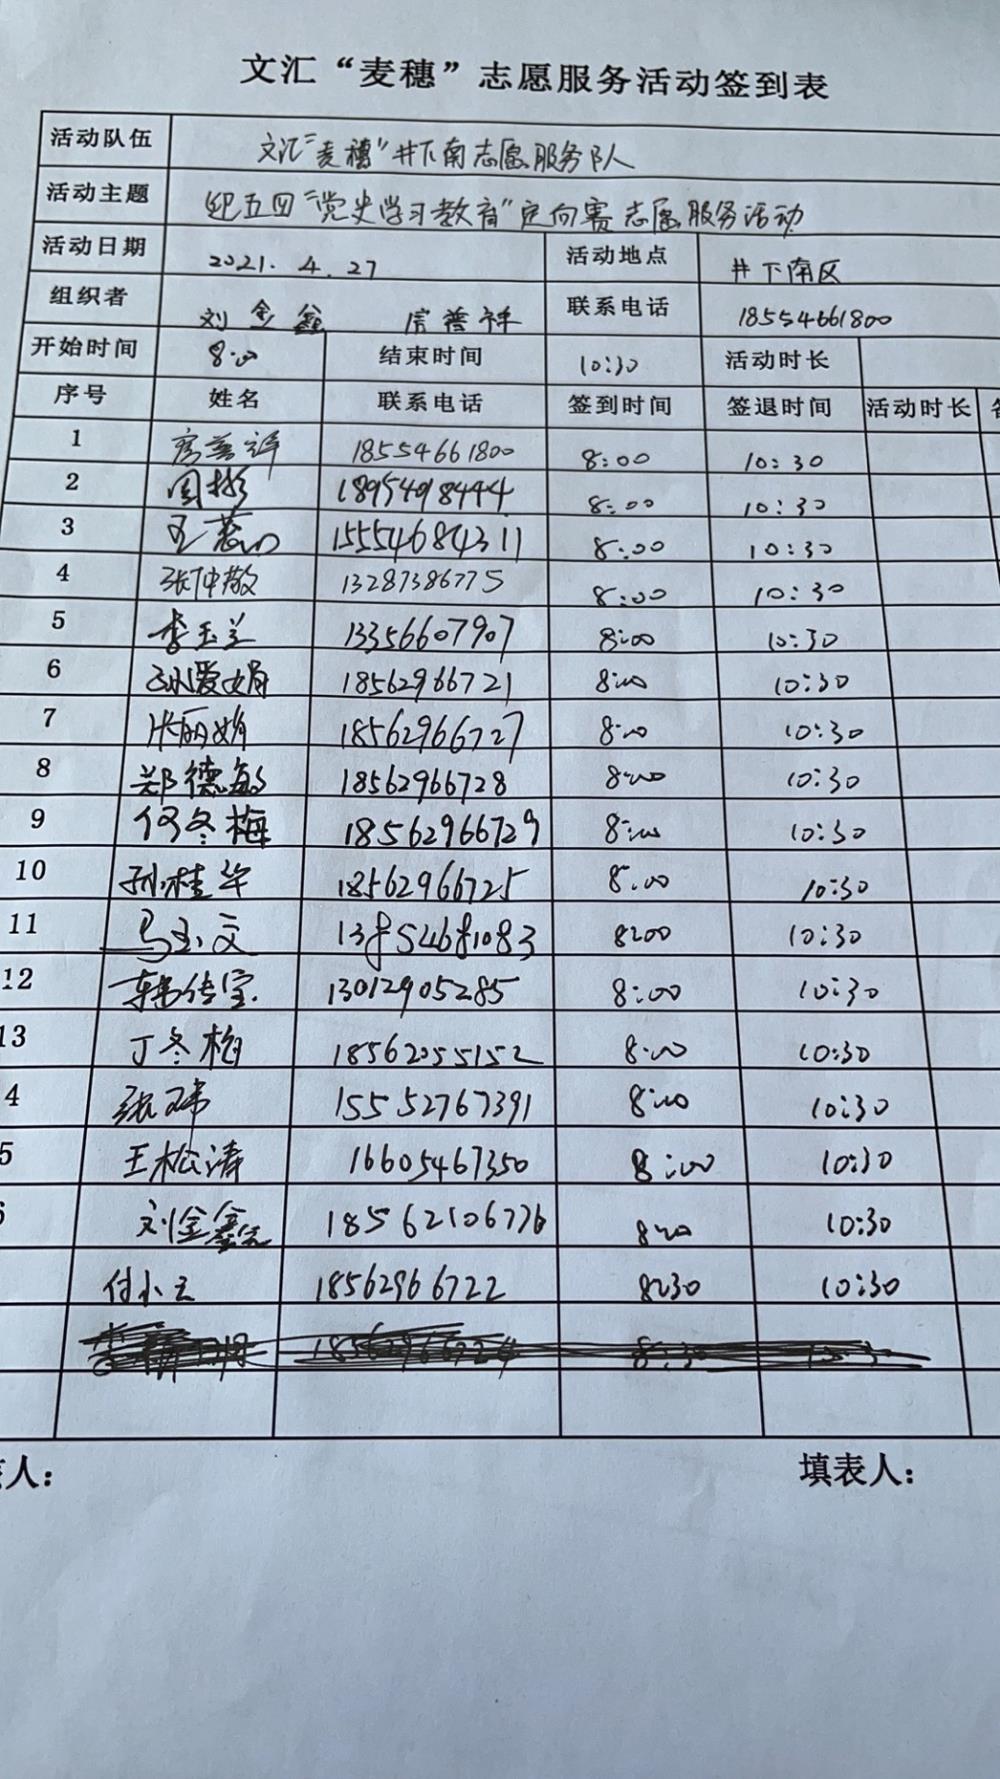 文汇“麦穗”志愿服务活动签到表
活动队伍 文汇“麦穗”井下南志愿服务队
活动主题 纪五四“党史学习教育”定向赛志愿服务活动
活动日期 2021.4.27 活动地点 井下南区
组织者 刘金鑫 房善祥 联系电话 18554661800
开始时间 8:00 结束时间 10:30 活动时长
序号 姓名 联系电话 签到时间 签退时间 活动时长
1 房善祥 18554661800 8:00 10:30
2 周彬 18954918444 8:00 10:30
3 王蕊 15554684311 8:00 10:30
4 张仲敬 13287386775 8:00 10:30
5 李玉兰 13356607907 8:00 10:30
6 孙爱娟 18562966721 8:00 10:30
7 张丽娟 18562966727 8:00 10:30
8 郑德敏 18562966728 8:00 10:30
9 何冬梅 18562966729 8:00 10:30
10 孙桂华 18562966725 8:00 10:30
11 马玉文 13854681083 8:00 10:30
12 韩传宝 13012905285 8:00 10:30
13 丁冬梅 18562055152 8:00 10:30
4 张玮 15552767391 8:00 10:30
5 王松涛 16605467350 8:00 10:30
刘金鑫 18562106776 8:00 10:30
付小云 18562966722 8:30 10:30
人： 填表人：